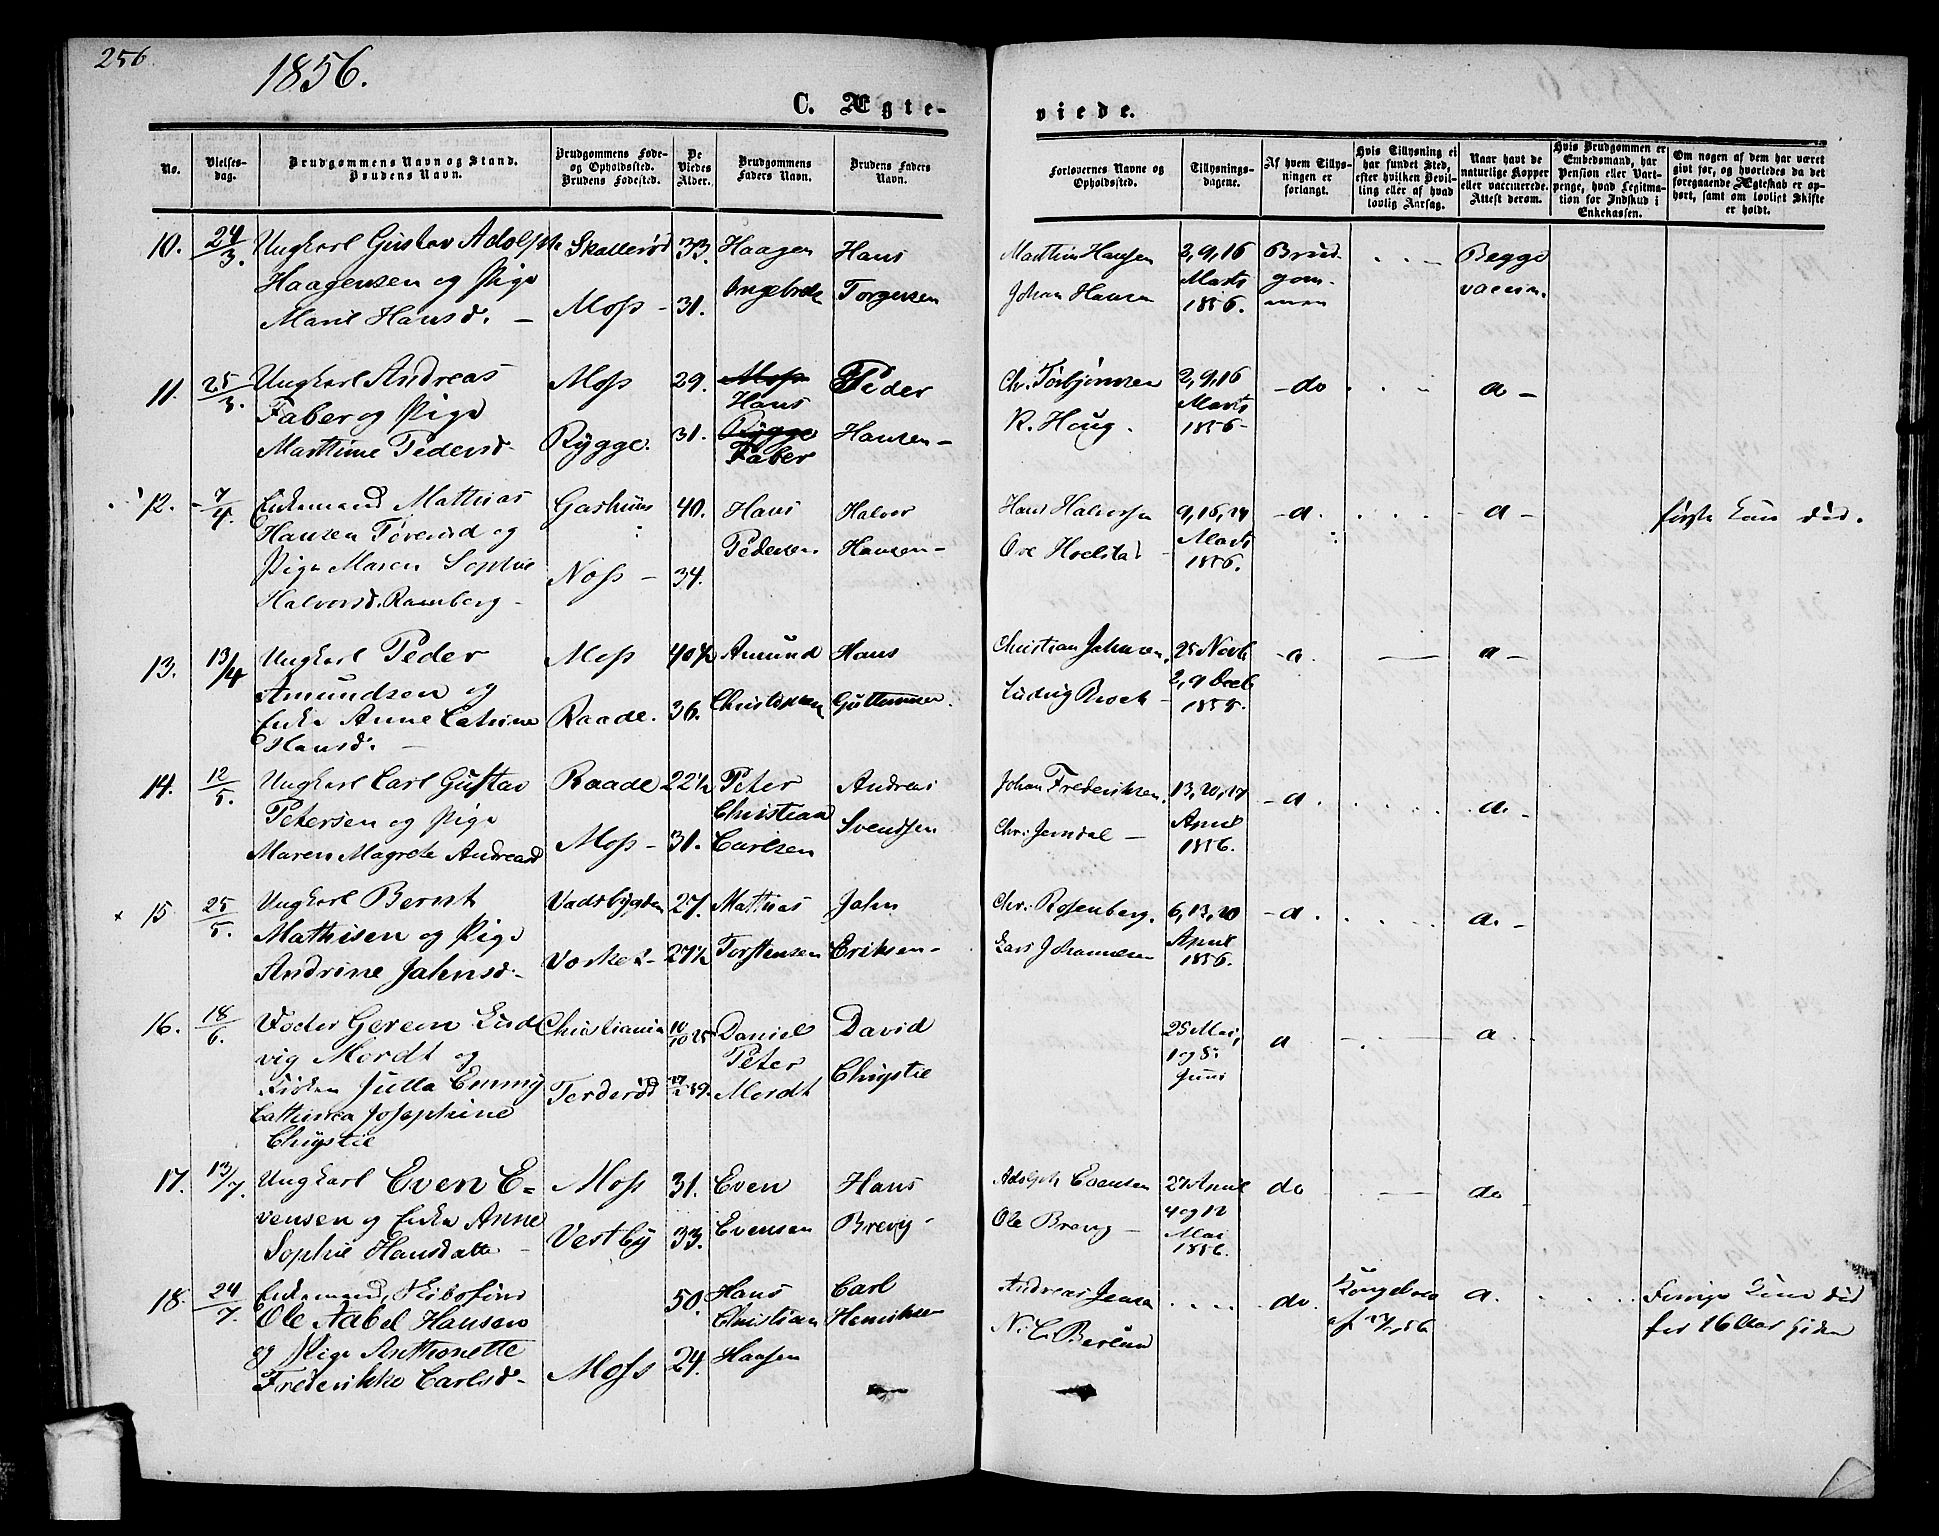 256
1856.
C. Ægte-
viede.
No.
Vielses-
dag.
Brudgommens Navn og Stand.
Brudens Navn.
Brudgommens Føde-
og Opholdssted.
Brudens Fødested.
De
Viedes
Alder.
Brudgommens
Faders Navn.
Brudens Faders
Navn.
Forlovernes Navne og
Opholdssted.
Tillysnings-
dagene.
Af hvem Tillys-
ningen er
forlangt.
Hvis Tillysning ei
har fundet Sted,
efter hvilken Bevil-
ling eller af hvad
lovlig Aarsag.
Naar havt de
naturlige Kopper
eller vaccinerede.
Attest derom.
Hvis Brudgommen er
Embedsmand, har
Pension eller Vart-
penge, hvad Legitima-
tion for Indskud i
Enkekassen.
Om nogen af dem har været
givt før, og hvorledes da det
foregaaende Ægteskab er op-
hørt, samt om lovligt Skifte
er holdt.
10. 24/3. Ungkarl Gustav Adolph Skallerød 33. Haagen Hans
Haagensen og Pige Ingebretsen Torgersen
Marie Hansd. – Moss – 31.
Matthis Hansen 2, 9, 16 Brud- Begge
Johan Hansen Marts gom- vaccin.
1856. men
11. 25/3. Ungkarl Andreas Moss 29. Moss Peder
Faber og Pige Hans
Marthine Pedersd. Rygge. 31. Rygge Hansen –
Faber
Chr. Torbjørnsen 2, 9, 16 – do a –
R. Houg. Marts
1856 –
12. 7/4. Enkemand Mathias 40. Hans Halvor
Hansen og Pedersen Hansen –
Pige Maren Sophie Moss – 34.
Halvorsd. Ramberg –
Hans Halvorsen 9, 16, 24 – a. – a – første Kone død.
Ove Marts
1856.
13. 13/4 Ungkarl Peder Moss 40½ Amund Hans
Amundsen og Christensen Guttormsen
Enke Anne Catrine Raade. 36.
Hansd. –
Christian Johnsen. 25 Novb – a. a –
Ludvig Brock – 2, 9 Decb
1855.
14. 12/5. Ungkarl Carl Gustav Raade – 22½ Peter Andreas
Petersen og Pige Christian Svendsen
Maren Magrete Andreasd Moss – 31. Carlsen
Johan Frederiksen. 13, 20, 27 – a. a. –
Chr. Jerndal – April
1856.
× 15 25/5. Ungkarl Bernt Vadsbygden 27. Mathias John
Mathisen og Pige Torstensen Eriksen –
Andrine Johnsd. – 27½
Chr. Rosenberg. 6, 13, 20 – a. a. –
Lars Johannesen April
1856.
16. 18/6. Lud- Christiania 10/10 25 Daniel David
vig Mordt og Peter
Frøken Julla Emmy Terderød 29. Mordt Chrystie
Cathinca Josephine
Chrystie
25 Mai, a a
1 og 8.
Juni
17. 13/7. Ungkarl Even E= Moss 31. Even Hans
vensen og Enke Anne Vestby 33. Evensen Brevig –
Sophie Hansdatter –
Adolph Evensen 27 April do do
Ole Brevig – 4 og 12
Mai
1856.
18. 24/7. Enkemand, 50. Hans Carl
Ole Aabel Hansen Christian Henriksen
og Pige Anthonette Moss 24. Hansen
Frederikke Carlsd. –
Andreas Jensen do. a. Forrige Kone død
N. C. for 16 Aar siden